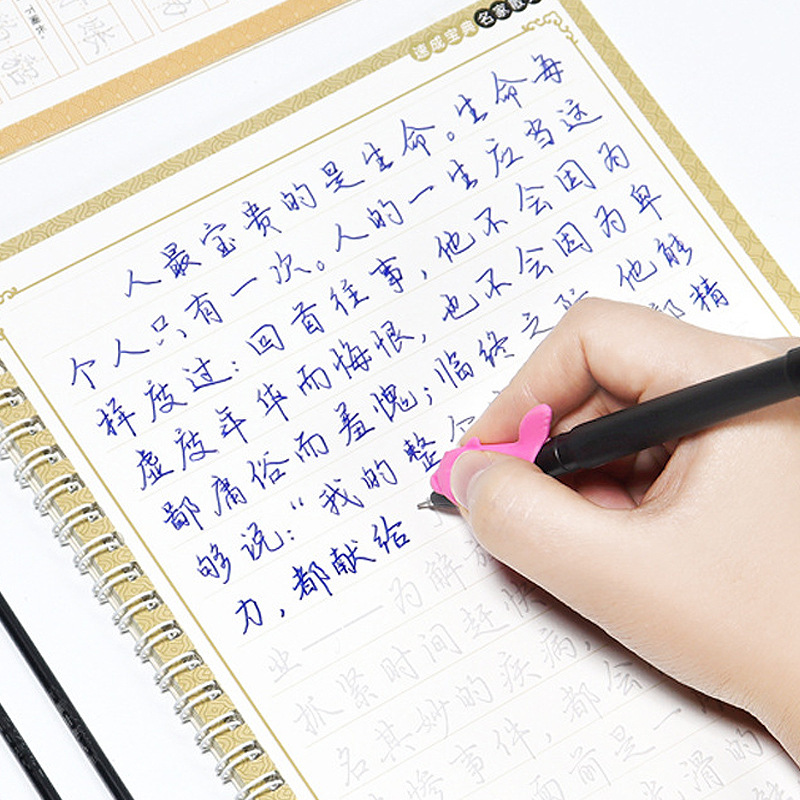 速成宝典 名家散
人最宝贵的是生命。生命每
个人只有一次。人的一生应当这
样度过：回首往事，他不会因为
虚度年华而悔恨，也不会因为卑
鄙庸俗而羞愧；临终之 他能
够说：“我的整个 部精
力，都献给
业——为解放
抓紧时间赶快
名其妙的疾病，
惨事件，都会
面前是一
光滑的